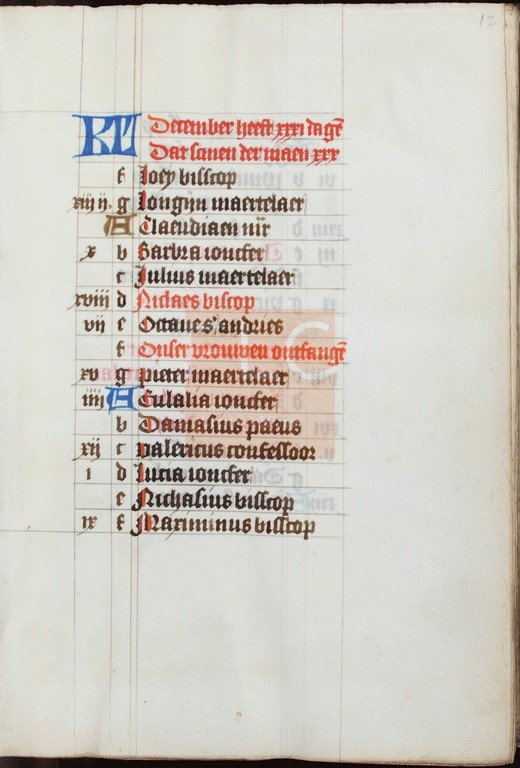 12
KL December heeft xxxi dagē
Dat saisen der maen xxx
f Loey bisscop
xiij ij. g Longijn maertelaer
A Claeudiaen mr̄
x b Barbra ioncfer
c Julius maertelaer
xviij d Niclaes biscop
vij e Octaue s' andries
f Onser vrouwen ontfangē
xv g Pieter maertelaer
iiij A Eulalia ioncfer
b Damasius paeus
xij c Valericus confessoor
i d Lucia ioncfer
e Nichasius bisscop
ix f Maximinus bisscop